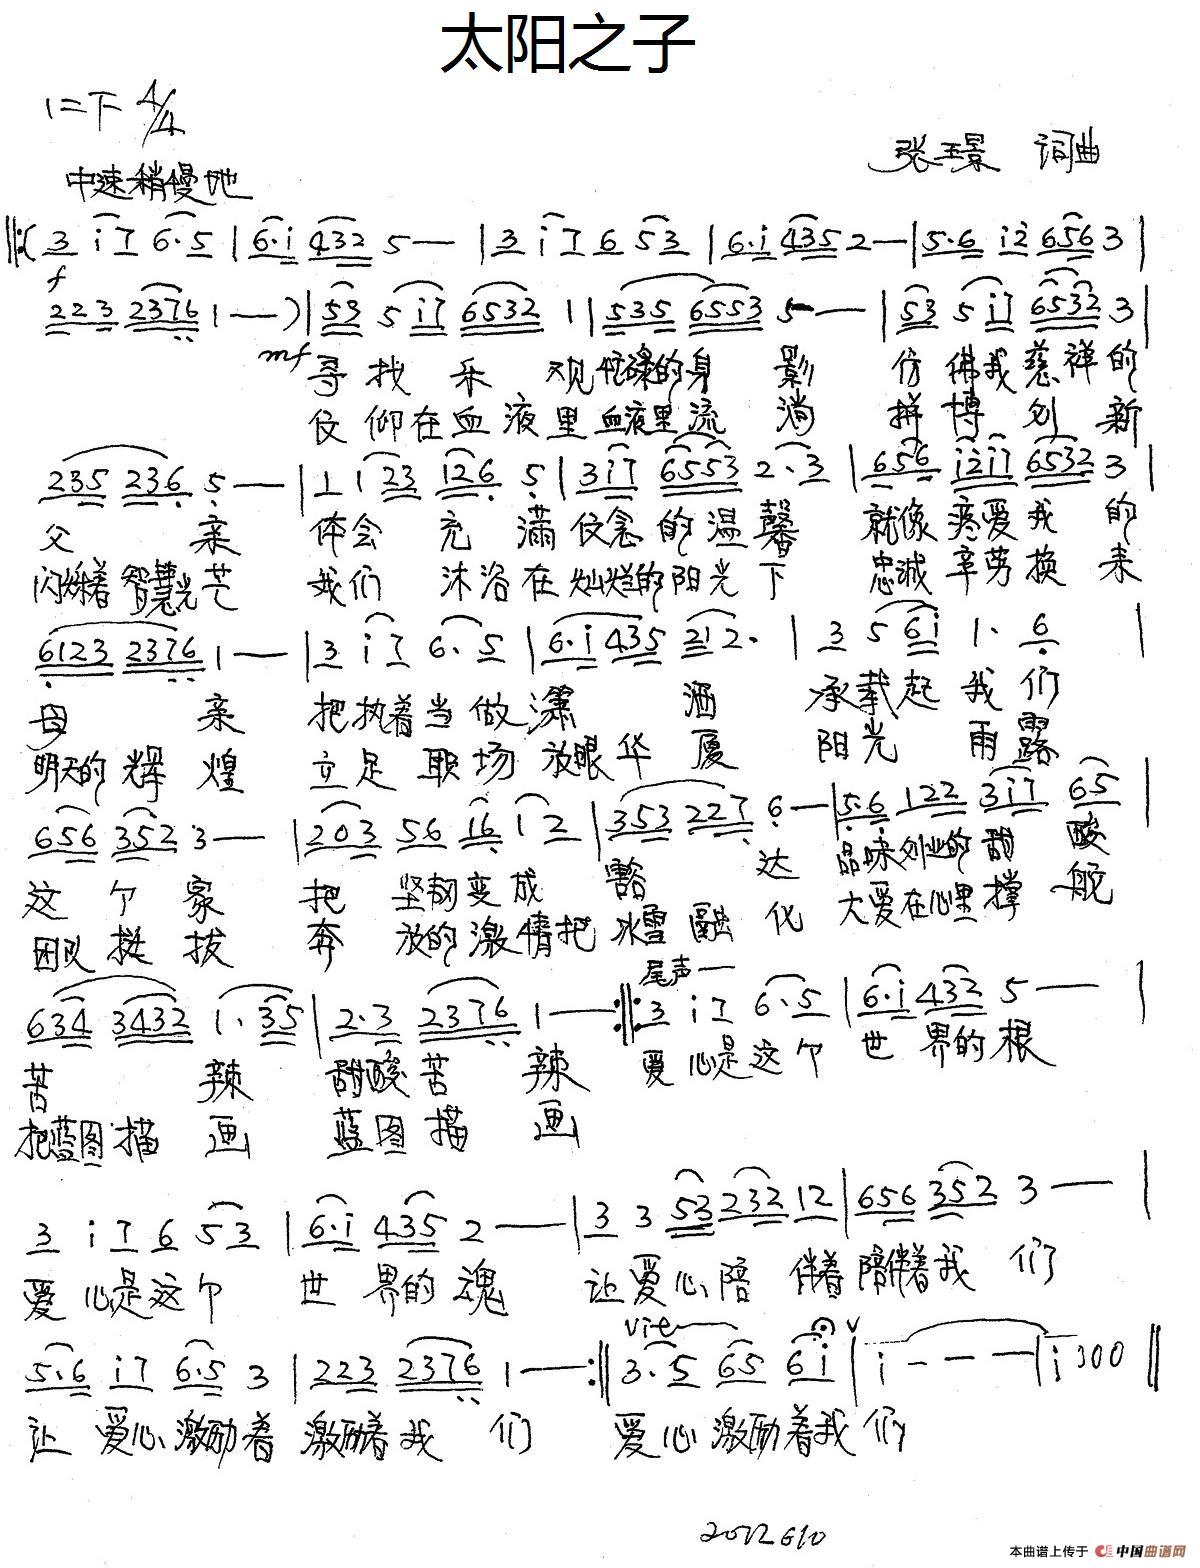 太阳之子
1=下 4/4
张玉景 词曲
中速稍慢地
‖:( 3 i 7 6·5 | 6·i 432 5 — | 3 i 7 6 53 | 6·i 435 2 — | 5·6 i2 656 3 |
f
223 2376 1 — ) | 53 5 i7 6532 1 | 535 6553 5 — | 53 5 i7 6532 3 |
mf 寻找乐观忙碌的身影 仿佛我慈祥的
仪仰在血液里血液里流淌 拼博创新
235 236 5 — | 1 1 23 126 5 | 3i7 6553 2·3 | 656 i2i7 6532 3 |
父亲 体会充满仪念的温馨 就像疼爱我的
闪烁着智慧光芒 我们沐浴在灿烂的阳光下 忠诚辛劳换来
6123 2376 1 — | 3 i 7 6·5 | 6·i 435 212· | 3 5 6i 1· 6 |
母亲 把执着当做潇洒 承载起我们
明天的辉煌 立足职场放眼华厦 阳光雨露
656 352 3 — | 203 56 16 1 2 | 353 227 6 — | 5·6 122 3i7 65 |
这个家 把坚韧变成豁达 品味创业的甜酸
团队挺拔 奔放的激情把冰雪融化 大爱在心里撑舵
尾声
634 3432 1·35 | 2·3 2376 1 — :‖: 3 i 7 6·5 | 6·i 432 5 — |
苦辣 甜酸苦辣 爱心是这个世界的根
把蓝图描画 蓝图描画
3 i 7 6 53 | 6·i 435 2 — | 3 3 53 232 12 | 656 352 3 — |
爱心是这个世界的魂 让爱心陪伴着陪伴着我们
vie
5·6 i7 6·5 3 | 223 2376 1 — :‖ 3·5 65 6i | i — — — | i 300 ‖
让爱心激励着激励着我们 爱心激励着我们
2012 610
本曲谱上传于 中国曲谱网